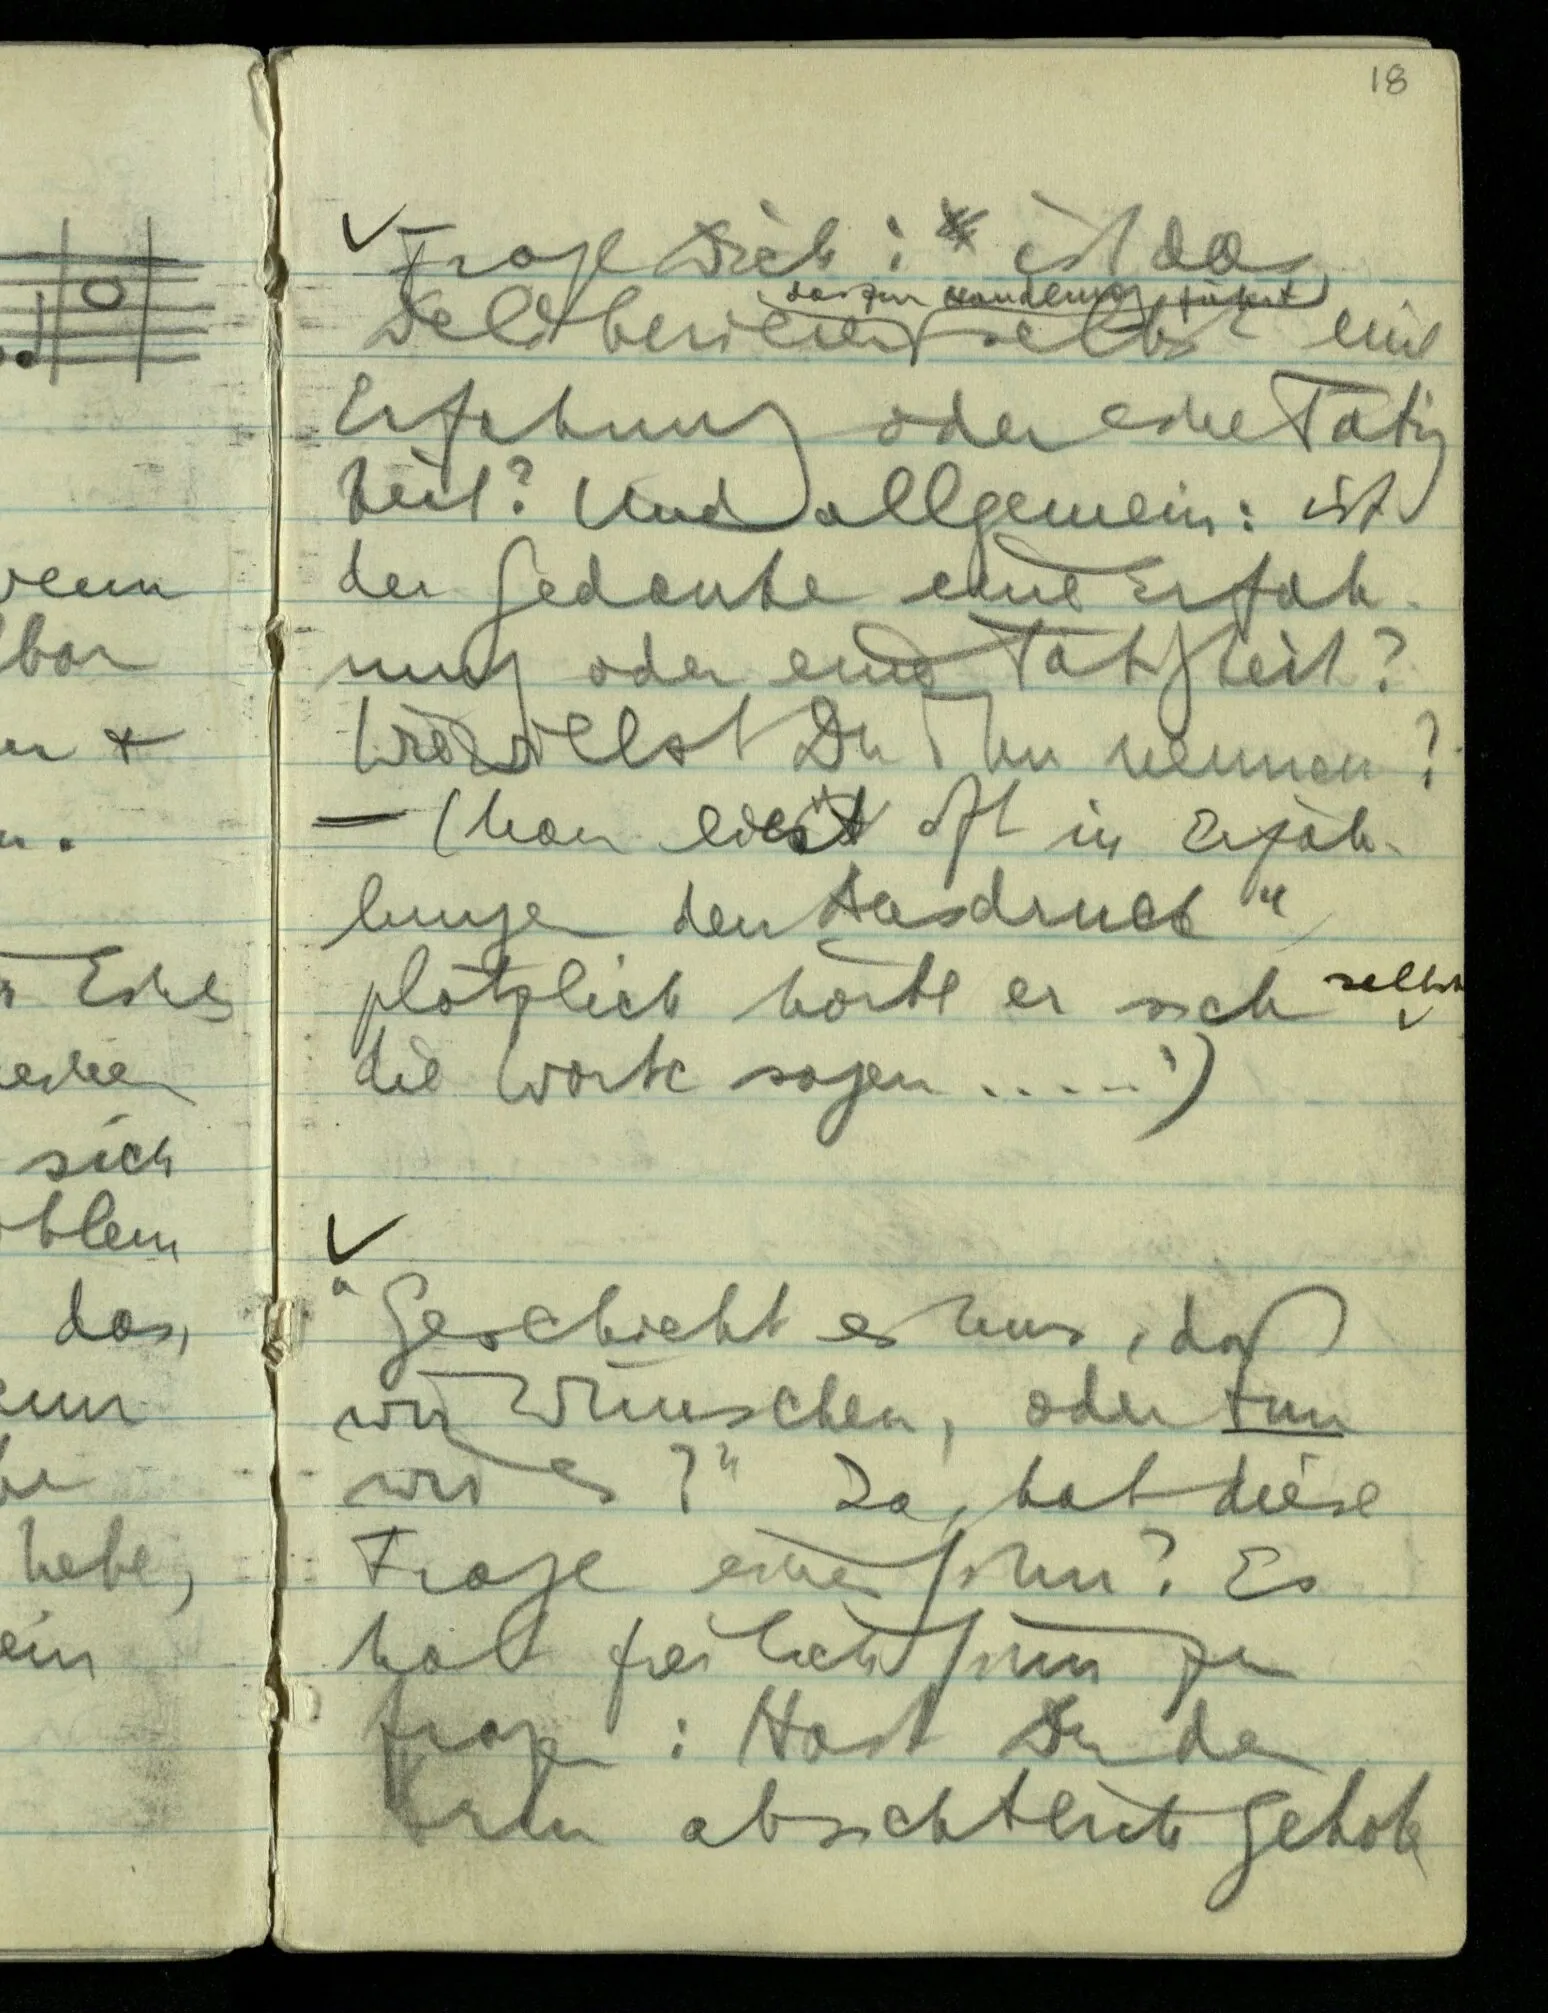 18
Frage Dich: ist das
das zur Handlung führt
Deliberieren selbst eine
Erfahrung oder eine Tätig
keit? Und allgemein: ist
der Gedanke eine Erfah-
rung oder eine Tätigkeit?
Wie willst Du ihn nennen?
— (Man liest oft in Erzäh-
lungen den Ausdruck "
plötzlich hörte er sich selbst
die Worte sagen ....")
"Geschieht es uns, daß
wir wünschen, oder tun
wir es?" Ja, hat diese
Frage einen Sinn? Es
hat freilich Sinn zu
fragen: Hast Du den
Arm absichtlich gehob
wenn
lbar
er +
n.
Eines
sich
oblem
das,
enn
hebe,
ein